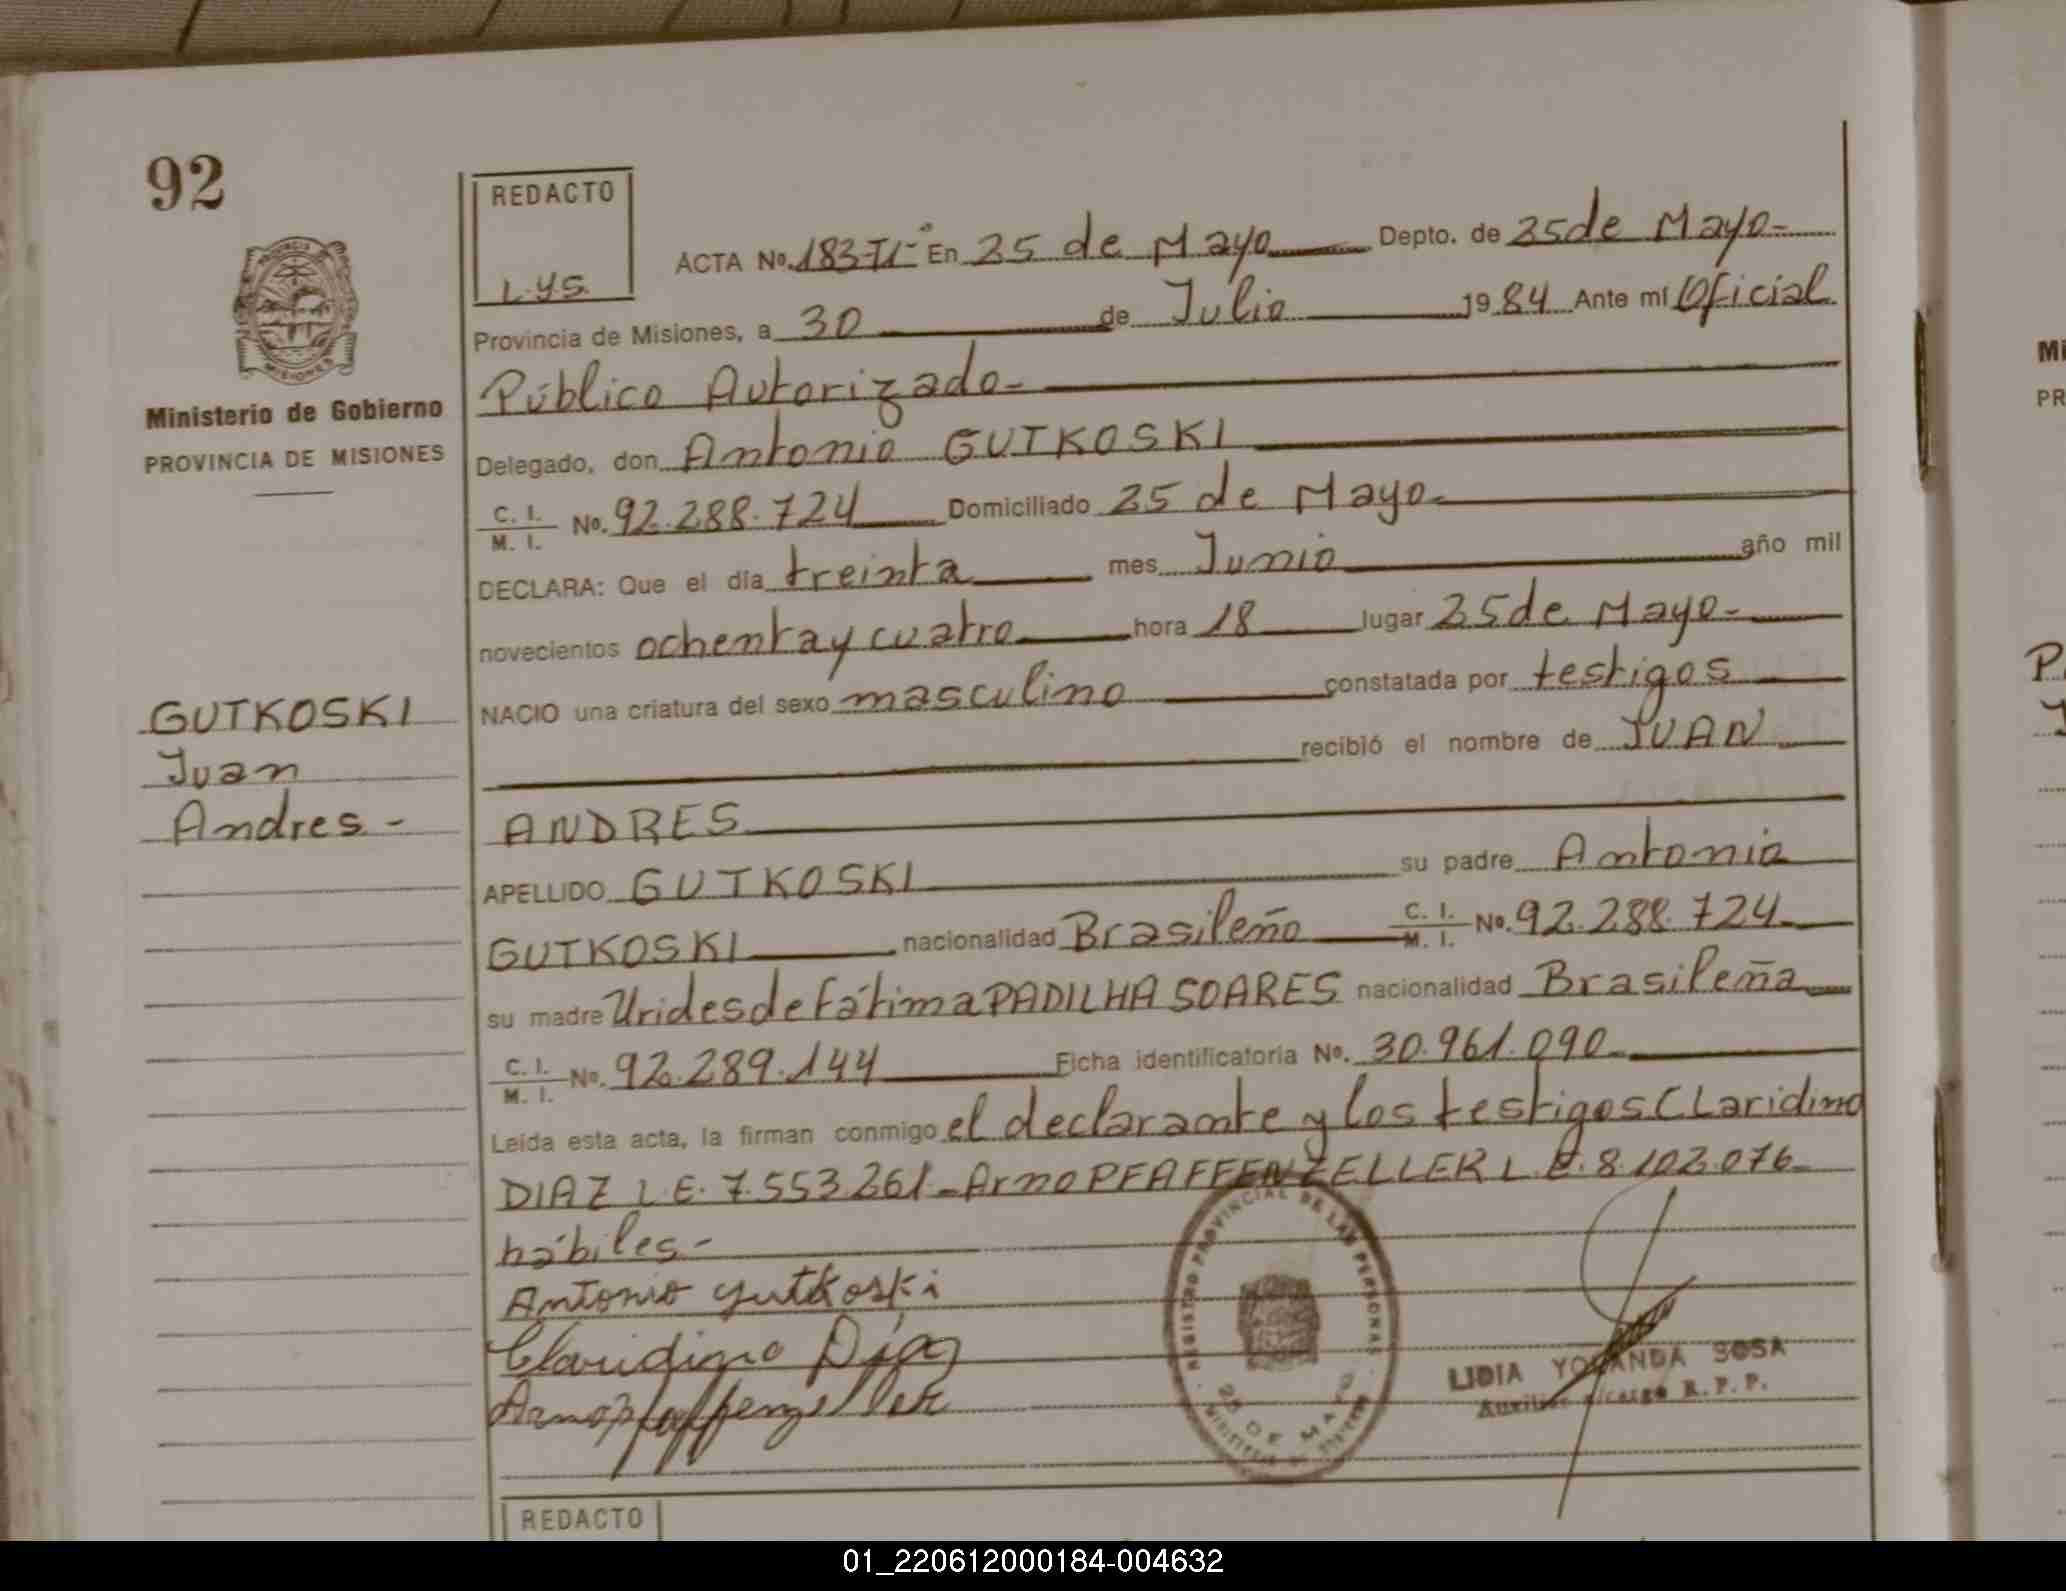 92
REDACTO
L.Y.S.
ACTA No. 183-TI-° En 25 de Mayo Depto. de 25 de Mayo-
Provincia de Misiones, a 30 de Julio 1984 Ante mí Oficial
Público Autorizado-
Delegado, don Antonio GUTKOSKI
C. I. / M. I. No. 92.288.724 Domiciliado 25 de Mayo-
DECLARA: Que el día treinta mes Junio año mil
novecientos ochenta y cuatro hora 18 lugar 25 de Mayo-
NACIO una criatura del sexo masculino constatada por testigos
recibió el nombre de JUAN
ANDRES
APELLIDO GUTKOSKI su padre Antonio
GUTKOSKI nacionalidad Brasileño C. I. / M. I. No. 92.288.724
su madre Urides de Fátima PADILHA SOARES nacionalidad Brasileña
C. I. / M. I. No. 92.289.144 Ficha identificatoria No. 30.961.090
Leída esta acta, la firman conmigo el declarante y los testigos Claridino
DIAZ L.E. 7.553.261-Arno PFAFFENZELLER L.E. 8.102.076-
hábiles-
Antonio Gutkoski
Claridino Díaz
Arno Pfaffenzeller
REGISTRO PROVINCIAL DE LAS PERSONAS
25 DE MAYO
LIDIA YOLANDA SOSA
Auxiliar a/cargo R.P.P.
MISIONES
Ministerio de Gobierno
PROVINCIA DE MISIONES
GUTKOSKI
Juan
Andres-
REDACTO
Mi
PR
01_220612000184-004632